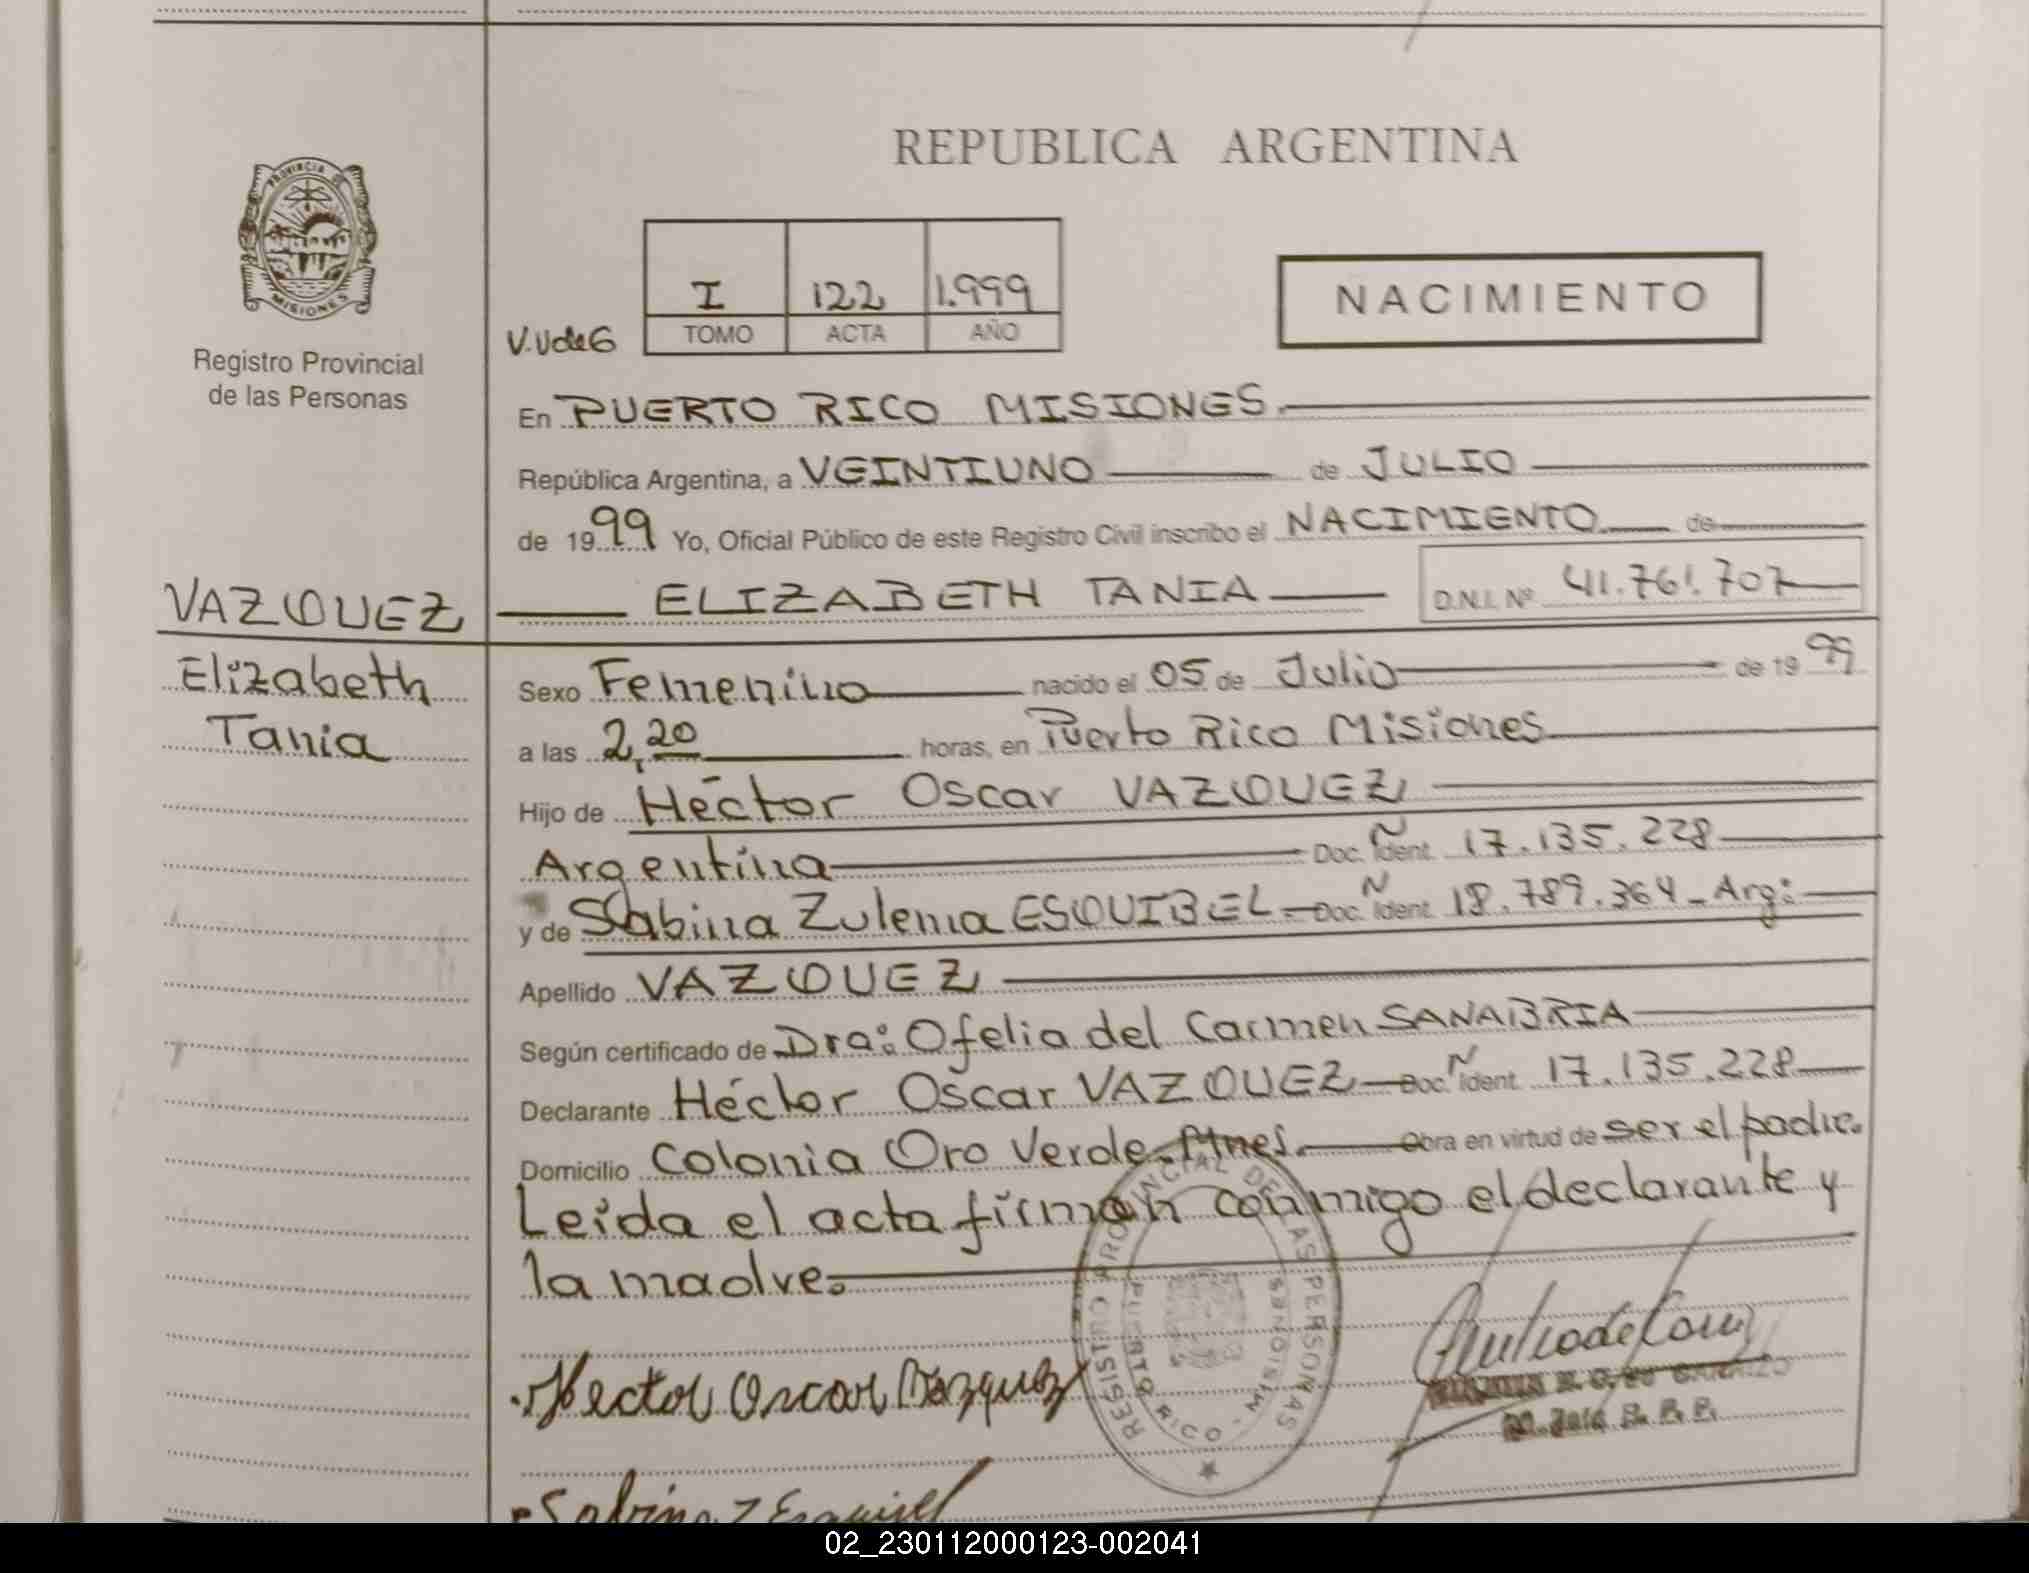 REPUBLICA ARGENTINA
PROVINCIA DE
MISIONES
Registro Provincial
de las Personas
I 122 1.999
TOMO ACTA AÑO
NACIMIENTO
En PUERTO RICO MISIONES.
República Argentina, a VEINTIUNO de JULIO
de 1999 Yo, Oficial Público de este Registro Civil inscribo el NACIMIENTO de
VAZQUEZ
ELIZABETH TANIA D.N.I. Nº 41.761.707
Elizabeth
Tania
Sexo Femenino nacido el 05 de Julio de 1999
a las 2,20 horas, en Puerto Rico Misiones
Hijo de Héctor Oscar VAZQUEZ
Argentina Doc. Ident. Ñ 17.135.228
y de Sabina Zulema ESQUIBEL Doc. Ident. N 18.789.364 - Arg:
Apellido VAZQUEZ
Según certificado de Dra: Ofelia del Carmen SANABRIA
Declarante Héctor Oscar VAZQUEZ Doc. Ident. Ñ 17.135.228
Domicilio Colonia Oro Verde - Mnes. Obra en virtud de ser el padre.
Leída el acta firman conmigo el declarante y
la madre.
Hector Oscar Vazquez
REGISTRO PROVINCIAL DE LAS PERSONAS
PUERTO RICO - MISIONES
Sabina Z Esquivel
02_230112000123-002041